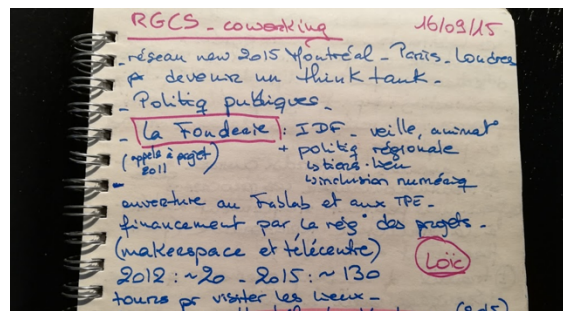 RGCS - coworking 16/09/15
- réseau new 2015 Montréal - Paris - Londres
pr devenir un think tank -
- Politiq publiques -
- La Fonderie : IDF - veille, animat°
(appels à projet 2011) + politiq régionale
↳ tiers-lieu
↳ inclusion numériq
- ouverture au Fablab et aux TPE -
financement par la rég° des projets -
(makerspace et télécentre) Loïc
2012 : ~20 - 2015 : ~130
tours pr visiter les lieux -